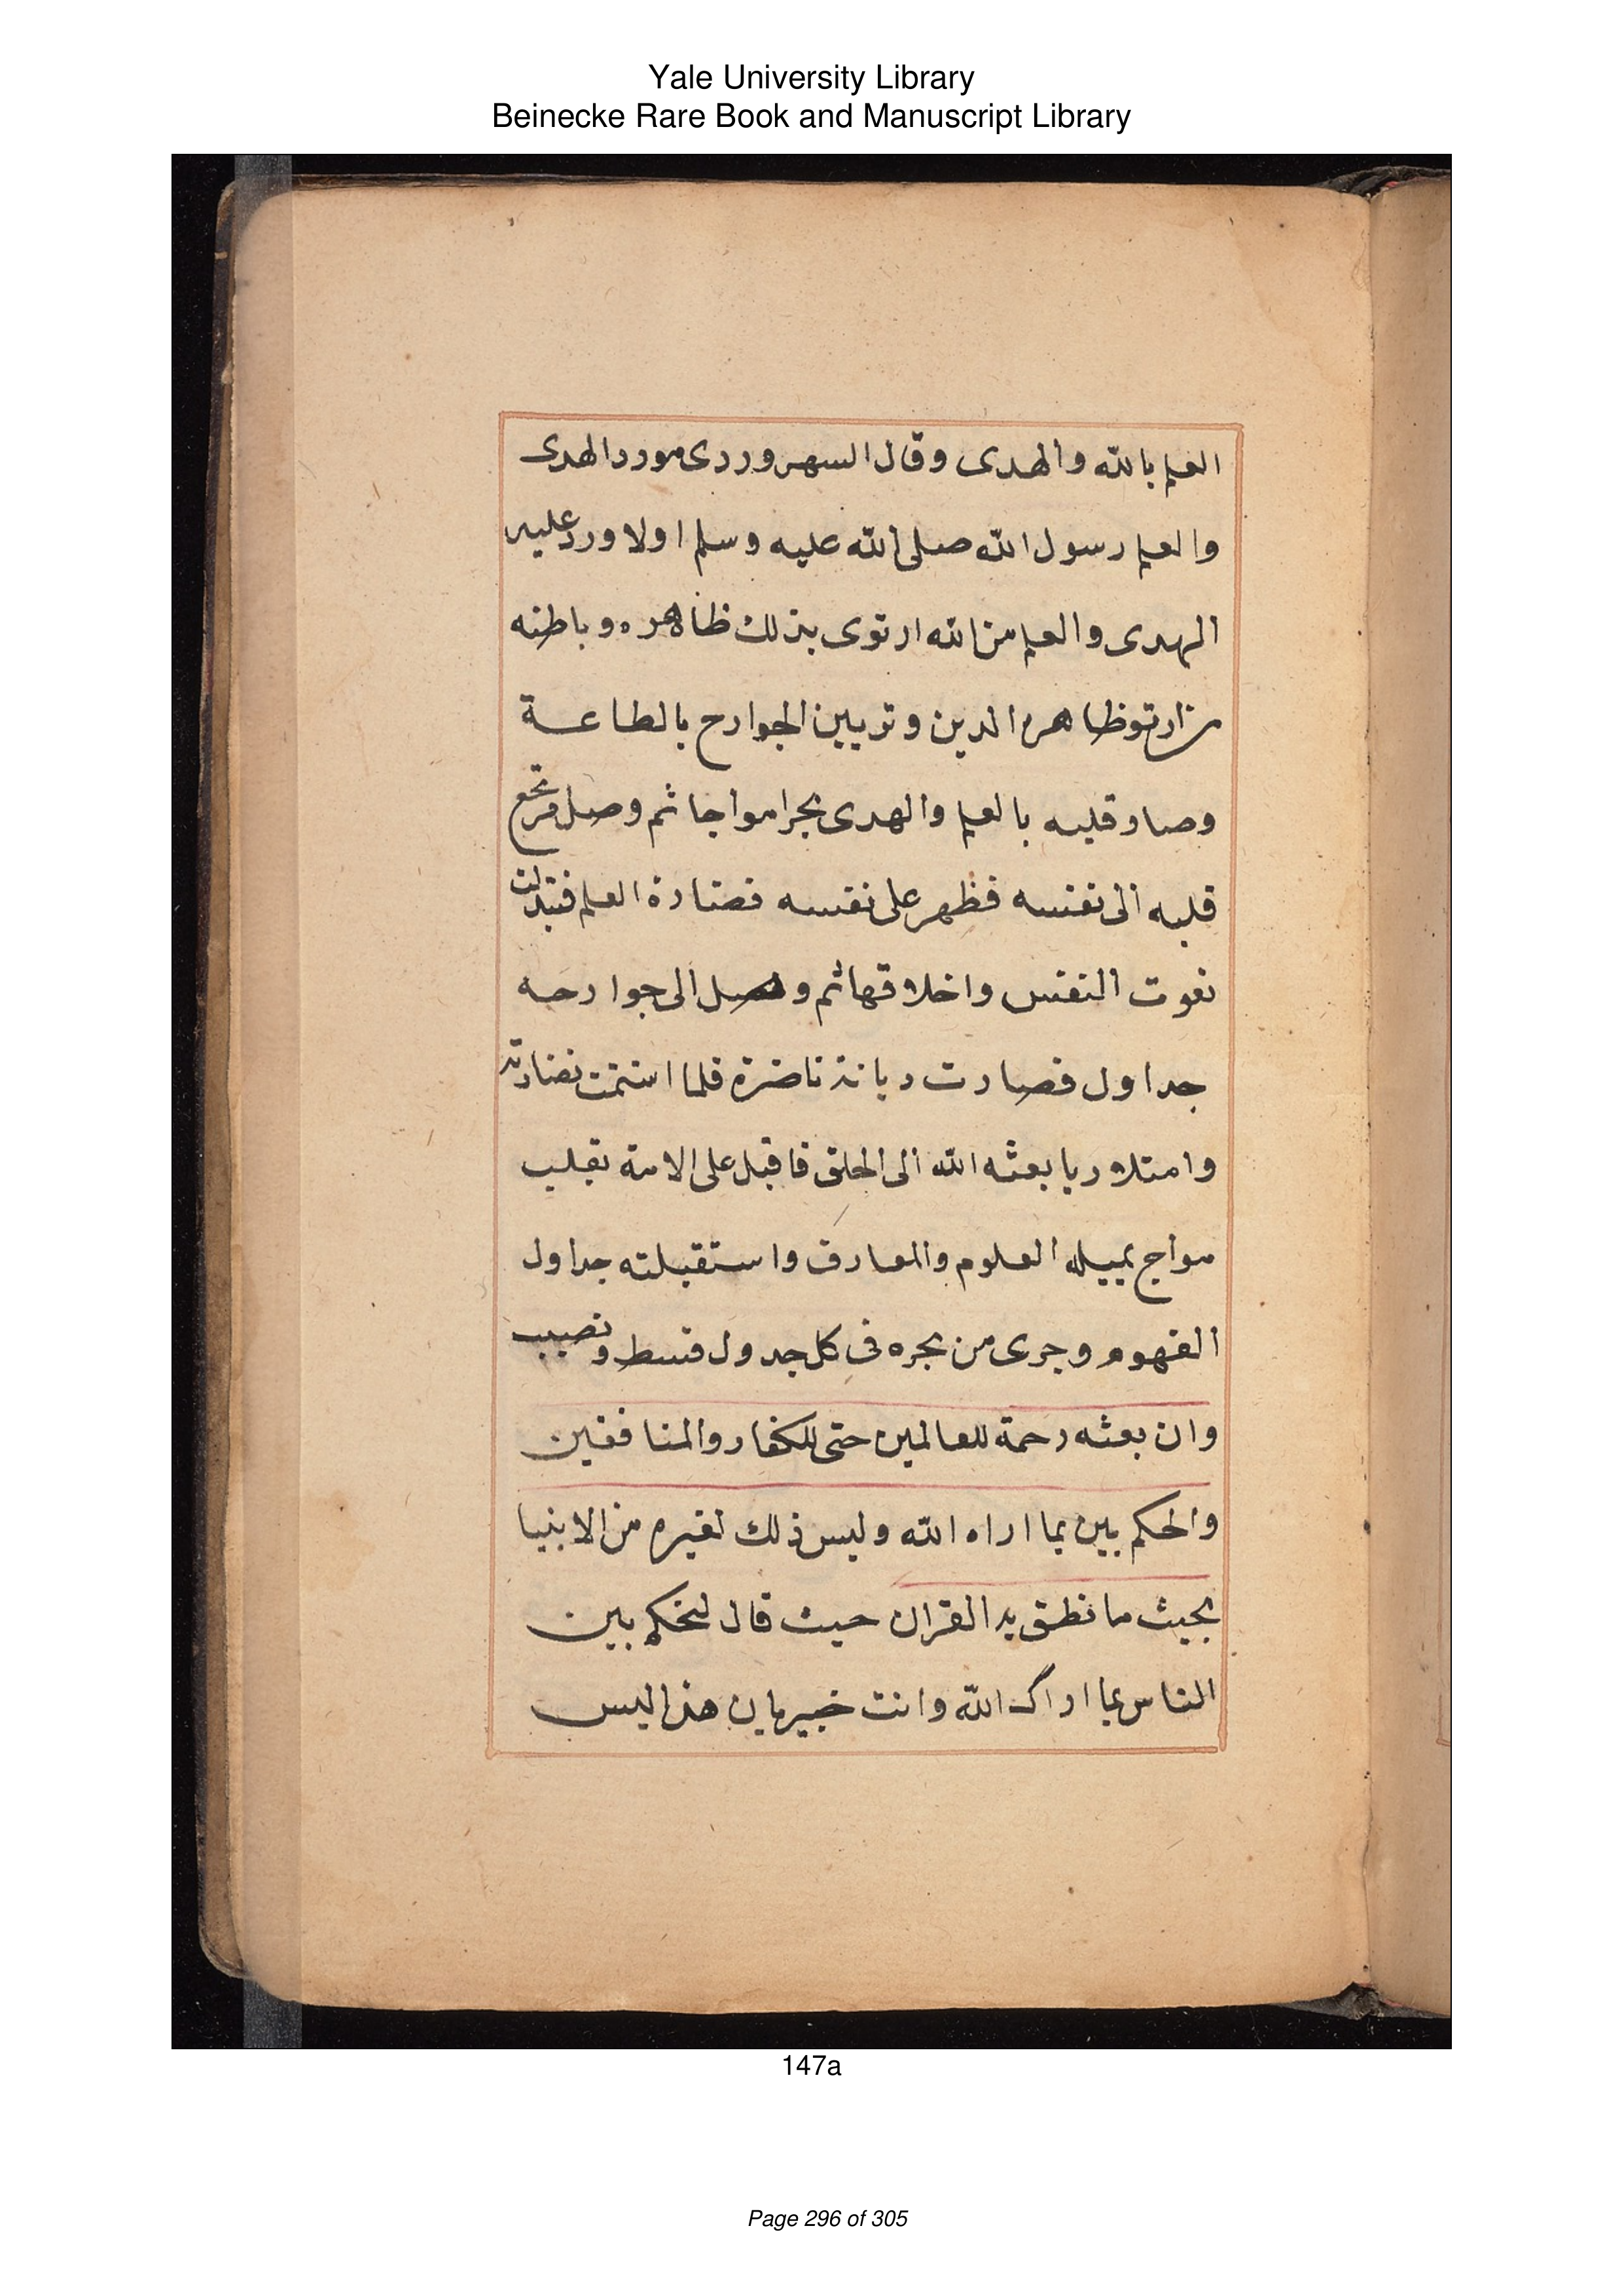 Yale University Library
Beinecke Rare Book and Manuscript Library
العلم بالله والهدى وقال السهروردى مورد الهدى
والعلم رسول الله صلى الله عليه وسلم اولا ورد عليه
الهدى والعلم من الله ارتوى بذلك ظاهره وباطنه
من ارتو ظاهره الدين وتزيين الجوارح بالطاعة
وصار قلبه بالعلم والهدى بحرا مواجا ثم وصل من بحر
قلبه الى نفسه فظهر على نفسه فضارة العلم فتبدلت
نعوت النفس واخلاقها ثم وصل الى جوارحه
جداول فصارت ريانة ناضرة فلما استتمت نضارته
وامتلا ريا بعثه الله الى الخلق فاقبل على الامة بقلب
مواج بمياه العلوم والمعارف واستقبلته جداول
الفهوم وجرى من بحره فى كل جدول قسط ونصيب
وان بعثه رحمة للعالمين حتى للكفار والمنافقين
والحكم بين بما اراه الله وليس ذلك لغيره من الانبيا
بحيث ما نطق به القران حيث قال لتحكم بين
الناس بما اراك الله وانت خبير بان هذا ليس
147a
Page 296 of 305